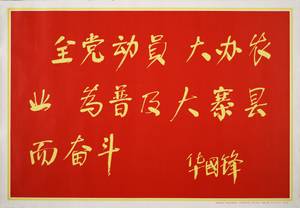 全党动員 大办农
业 为普及大寨县
而奋斗
华國锋